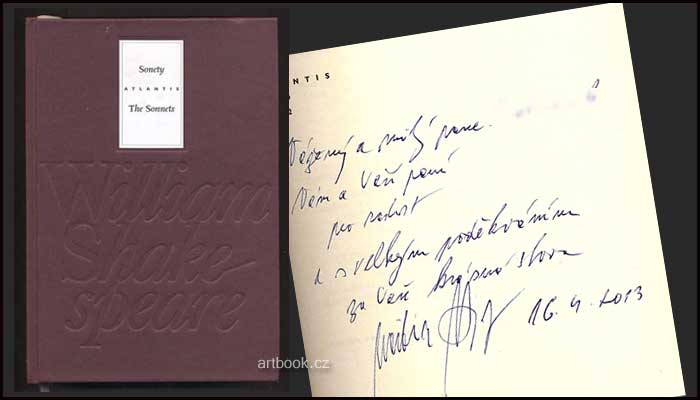 Sonety
ATLANTIS
The Sonnets
William
Shake-
speare
artbook.cz
NTIS
Vážený a milý pane
Vám a Vaší paní
pro radost
a s velkým poděkováním
za Vaše krásná slova
16. 4. 2013